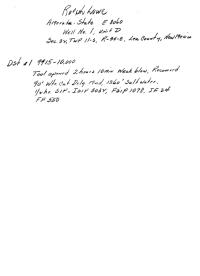 Amerada-State E 8060
Well No. 1, Unit D
Sec 32, Twp 11-S, R-33-E, Lea County, New Mexico
Dst #1 9915-10,000
Tool opened 2 hours 10 min weak blow, Recovered
90' Wtr Cut Drlg mud, 1560' Salt water.
1/2 hr. SIP - FSIP 1078, IF 24
FF 550